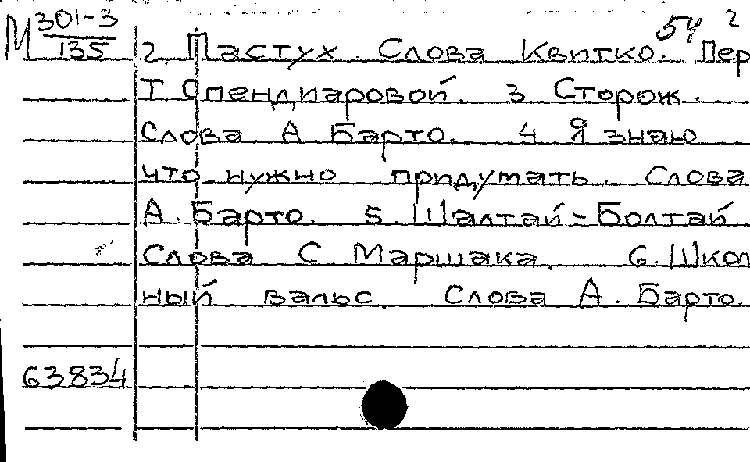 М 301-3
135
54 2
2. Пастух. Слова Квитко. Пер
Т Спендиаровой. 3 Сторож.
Слова А Барто. 4 Я знаю
что нужно придумать. Слова
А. Барто. 5. Шалтай-Болтай
Слова С Маршака. 6. Школ
ный вальс. Слова А. Барто.
63834